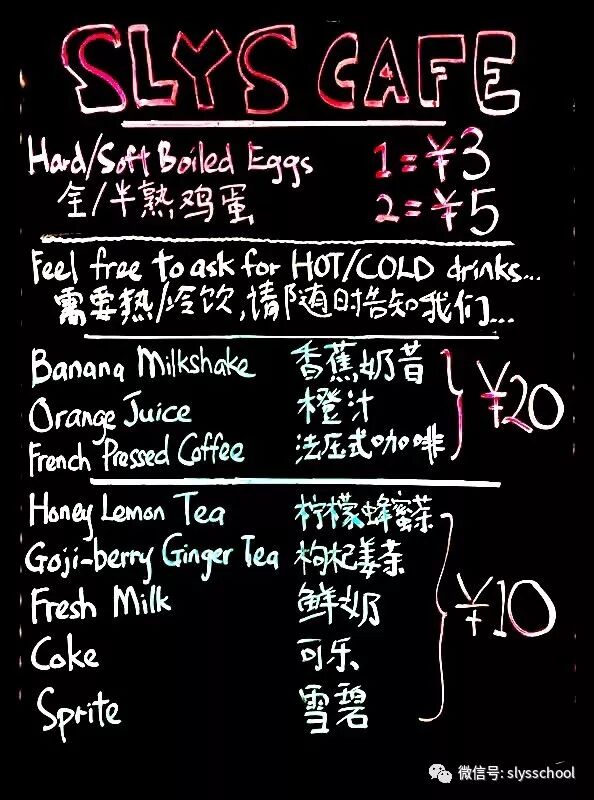 SLYS CAFE
Hard/Soft Boiled Eggs 1=¥3
全/半熟鸡蛋 2=¥5
Feel free to ask for HOT/COLD drinks...
需要热/冷饮,请随时告知我们...
Banana Milkshake 香蕉奶昔
Orange Juice 橙汁 ¥20
French Pressed Coffee 法压式咖啡
Honey Lemon Tea 柠檬蜂蜜茶
Goji-berry Ginger Tea 枸杞姜茶
Fresh Milk 鲜奶 ¥10
Coke 可乐
Sprite 雪碧
微信号: slysschool